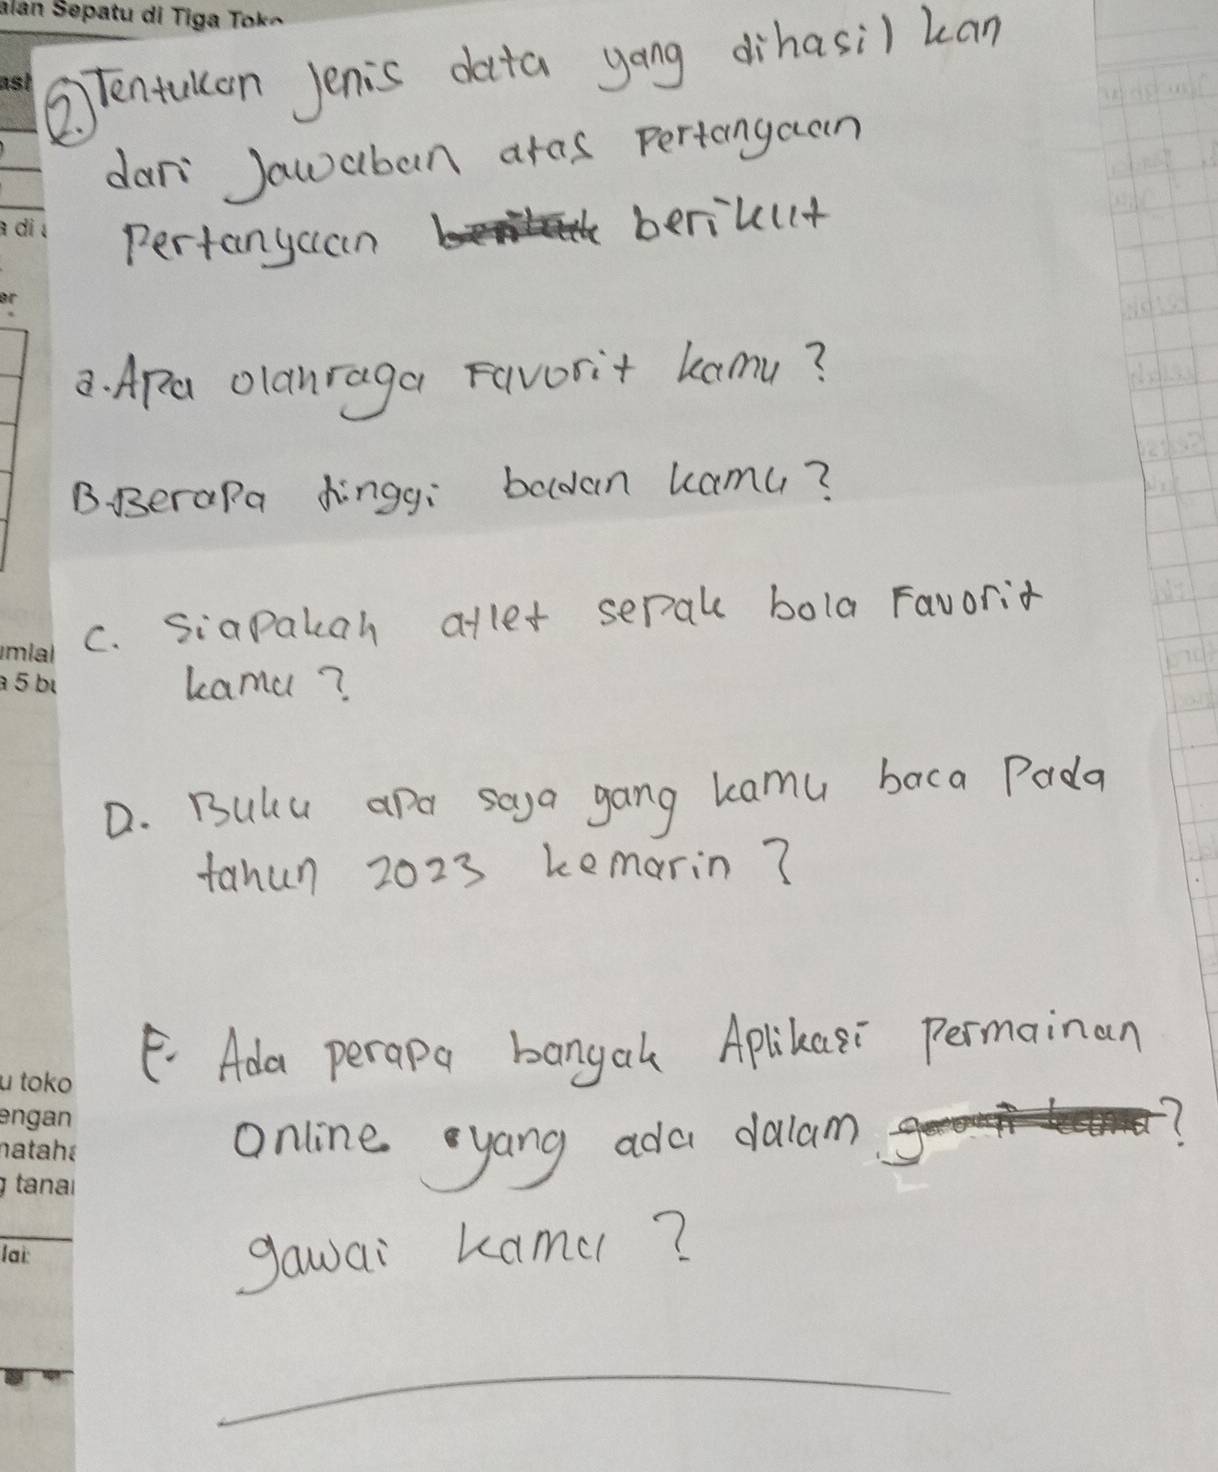 alan Sepatu di Tiga Toko
② Tentukan Jenis data yang dihasil kan
dari Jawaban atas Pertanyaan
Pertanyaan berikut
a di
a. Apa olahraga Favorit kamu?
B. Berapa tinggi badan kamu?
C. Siapakah atlet sepak bola Favorit
kamu?
a 5 bu
D. Buku apa saja yang kamu baca Pada
tahun 2023 kemarin?
E. Ada perapa banyak Aplikasi Permainan
u toko
engan
Online yang ada dalam ?
g tana
gawai kamu?
lai: